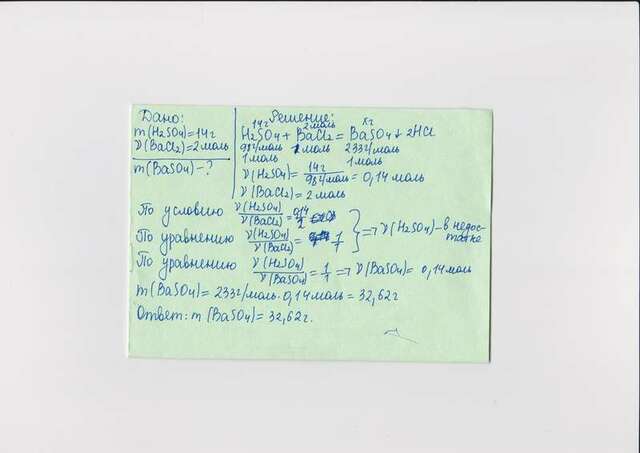 Дано:
m(H₂SO₄)=14г
ν(BaCl₂)=2моль
m(BaSO₄)-?
Решение:
14г 2моль xг
H₂SO₄ + BaCl₂ = BaSO₄↓ 2HCl
98г/моль 1моль 233г/моль
1моль 1моль
ν(H₂SO₄)= 14г/98г/моль = 0,14 моль
ν(BaCl₂)=2моль
По условию ν(H₂SO₄)/ν(BaCl₂) = 0,14/2
По уравнению ν(H₂SO₄)/ν(BaCl₂) = 1/1 } => ν(H₂SO₄)-в недос-
татке
По уравнению ν(H₂SO₄)/ν(BaSO₄) = 1/1 => ν(BaSO₄)= 0,14моль
m(BaSO₄)= 233г/моль·0,14моль = 32,62г
Ответ: m(BaSO₄)= 32,62г.